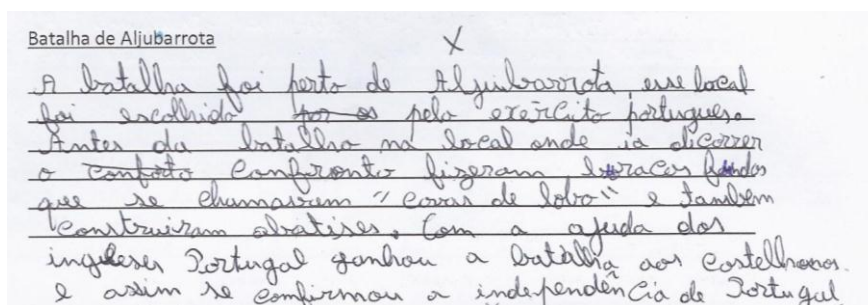 Batalha de Aljubarrota X
A batalha foi perto de Aljubarrota, esse local
foi escolhido por os pelo exército português.
Antes da batalha no local onde ia dicorrer
o conforto confronto fizeram buracos fundos
que se chumavem "covas de lobo" e também
construiram abatises. Com a ajuda dos
ingleses Portugal ganhou a batalha aos castelhanos.
e assim se comfirmou a independência de Portugal